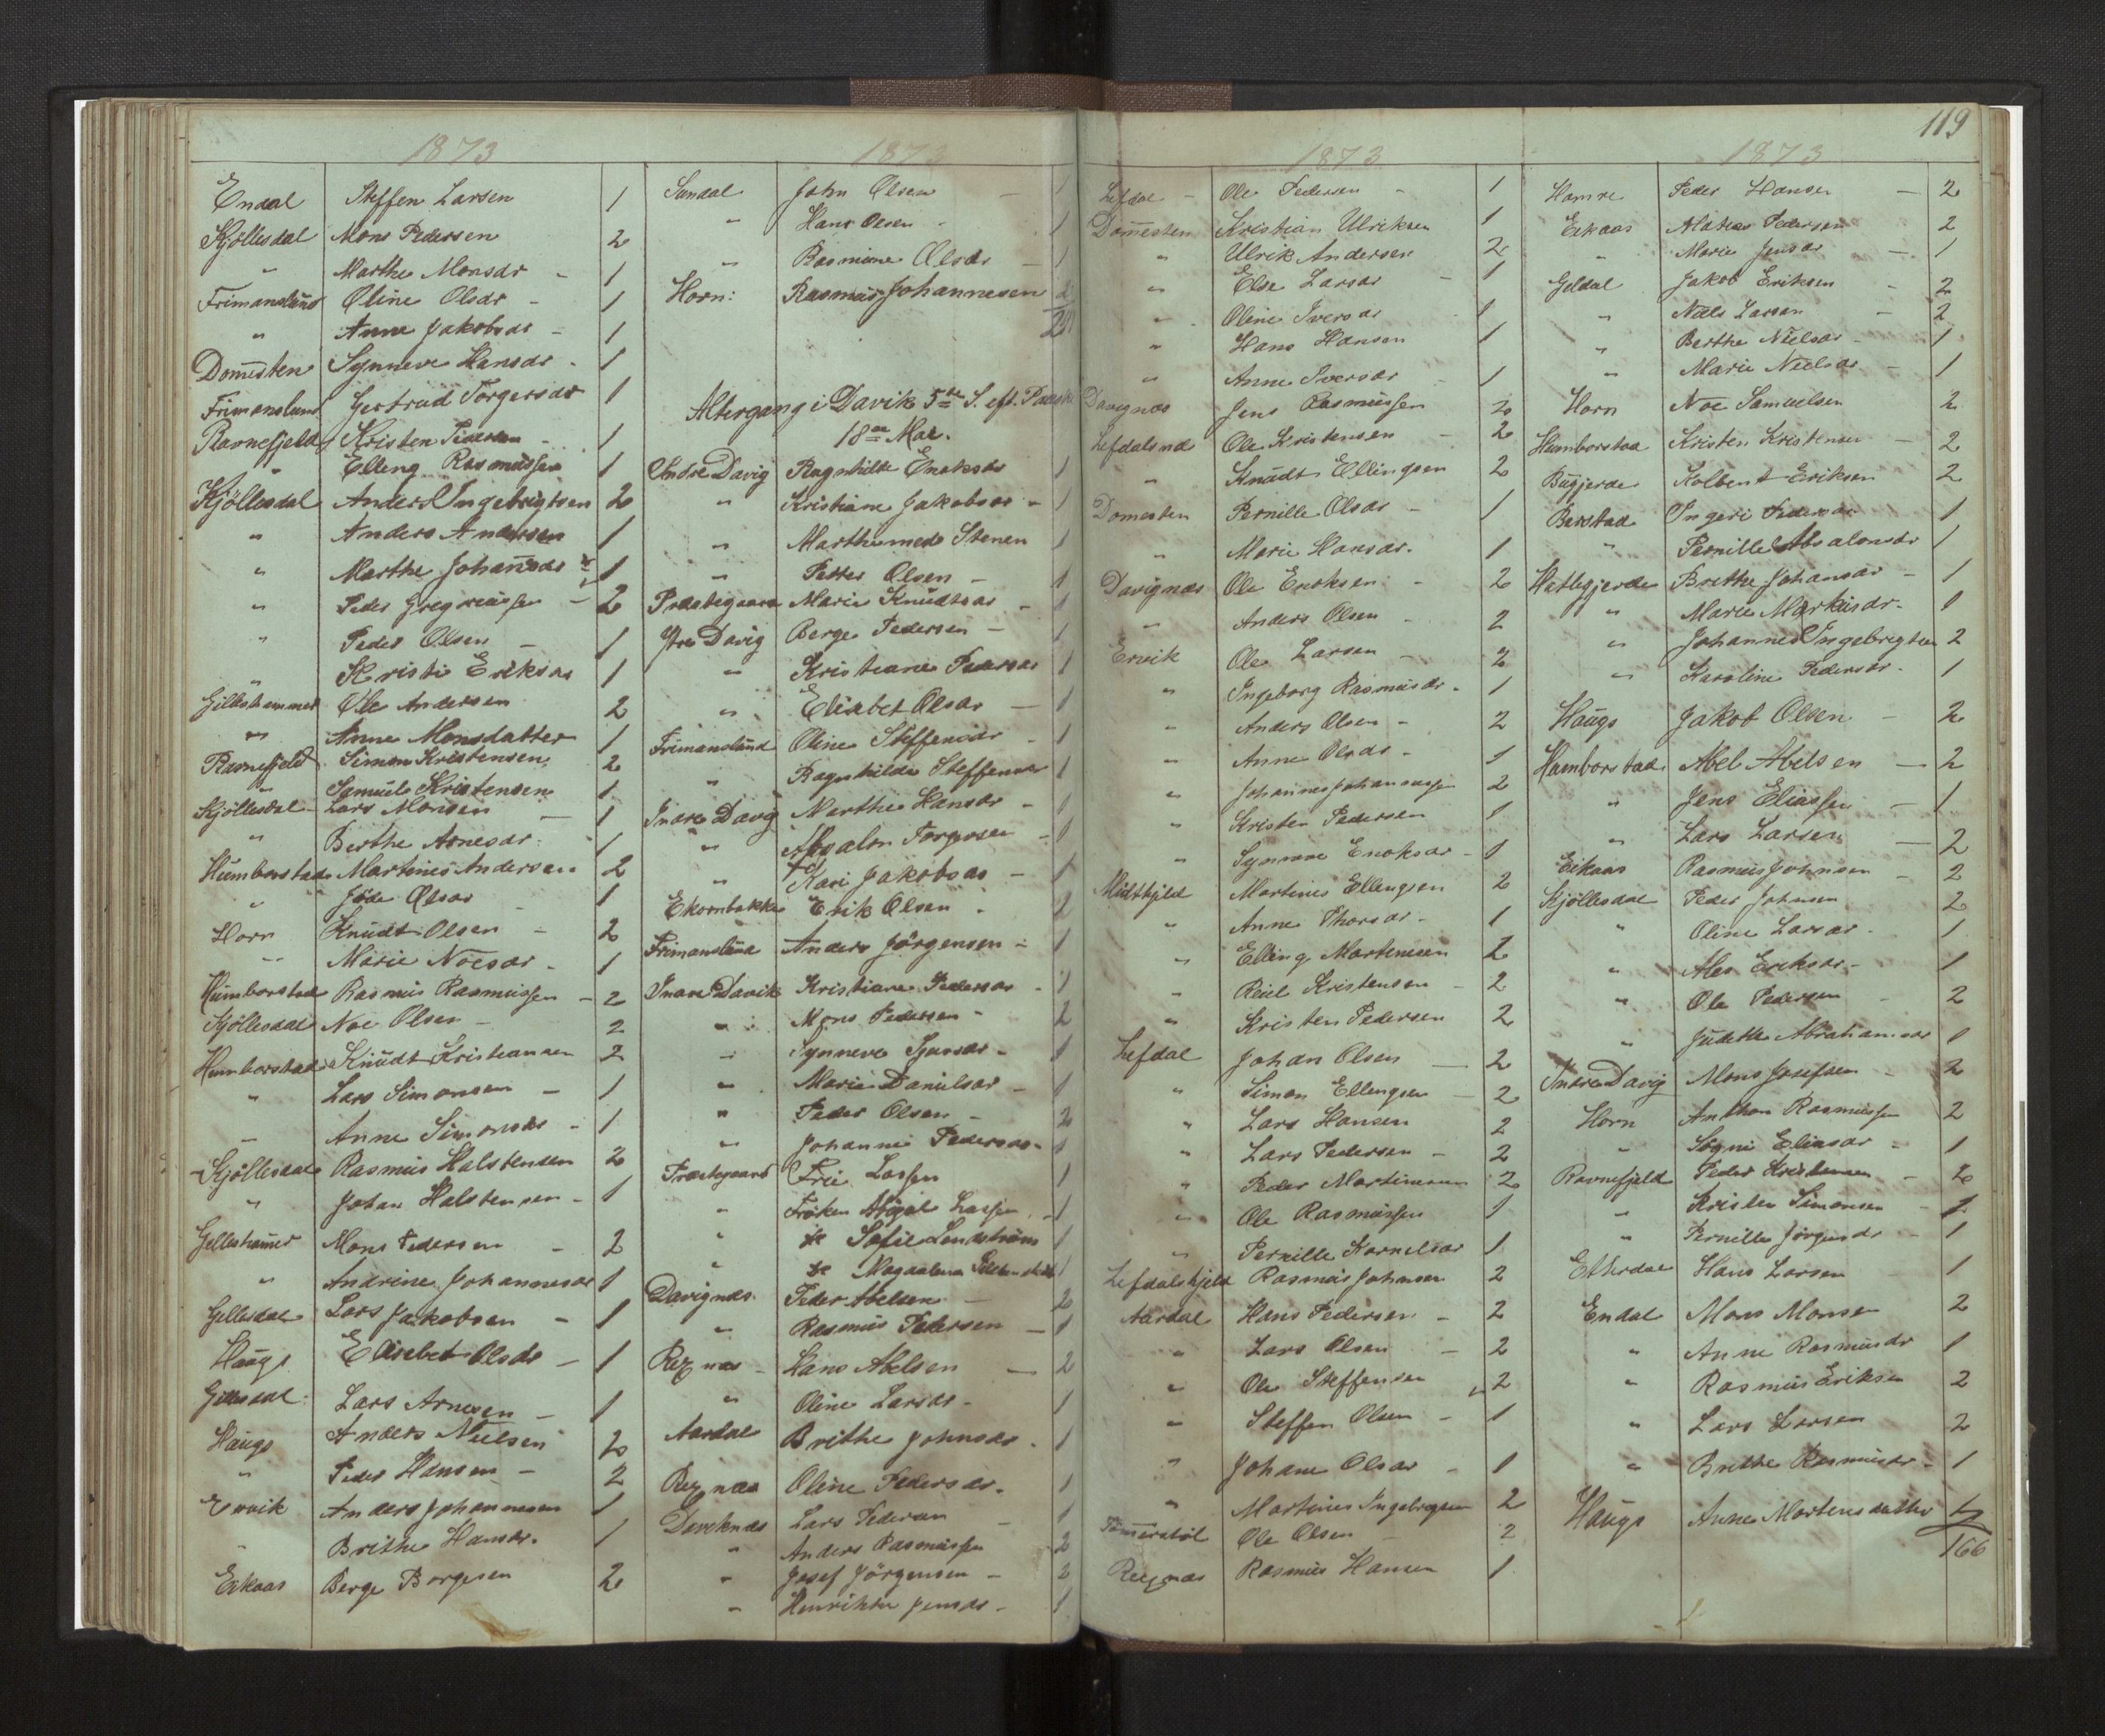 119
1873
Endal Steffen Larsen 1
Kjöllesdal Mons Pedersen 2
" Marthe Monsdr - 1
Frimanslund Oline Olsdr - 1
" Anne Jakobsdr - 1
Domesten Synneve Hansdr - 1
Frimanslund Gertrud Torgersdr 1
Ravnefjeld Kristen Pedersen - 1
" Elling Rasmussen 1
Kjöllesdal Anders Ingebrigtsen 2
" Anders Andersen 1
" Marthe Johansdr 1
" Peder Gregoriussen - 2
" Peder Olsen - 1
" Kristi Eriksdr 1
Gilleshammer Ole Andersen 2
" Anne Monsdatter 1
Ravnefjeld Simon Kristensen 2
" Samuel Kristensen 1
Kjöllesdal - Lars Monsen - 1
" Berthe Arnesdr. 1
Humborstad Martinus Andersen 2
" Olsdr - 1
Horn Knudt Olsen - 2
" Marie Noesdr - 1
Humborstad Rasmus Rasmussen - 2
Kjöllesdal Noe Olsen - 2
Humborstad Knudt Kristiansen 2
" Lars Simonsen - 1
" Anne Simonsdr - 1
Kjöllesdal Rasmus Halstensen 2
" Johan Halstensen - 1
Gilleshamer Mons Pedersen - 2
" Andrine Johannesdr 1
Gillesdal Lars Jakobsen - 1
Haugs Elisebet Olsdr - 1
Gillesdal Lars Arnesen - 1
Haugs Anders Nielsen 2
" Peder Hansen - 2
Ervik Anders Johannesen 1
" Brithe Hansdr. 1
Eikaas Berge Borgesen 2
1873
Sandal John Olsen - 1
" Hans Olsen - 1
" Rasmine Olsdr - 1
Horn: Rasmus Johannesen 2
Altergang i Davik 5te S. eft. Paaske
18de Mai.
Indre Davig Ragnhilde Enoksdr 1
" Kristiane Jakobsdr - 1
" Marthe med Stenen 1
" Petter Olsen - 1
Præstegaard Marie Knudtsdr - 1
Ytre Davig Berge Pedersen - 1
" Kristiane Pedersdr 1
" Elisabet Olsdr - 1
Frimanslund Oline Steffensdr - 1
" Ragnhilde Steffensdr 1
Indre Davig Marthe Hansdr - 1
" Absalon Torgersen - 1
" Kari Jakobsdr - 1
Ekornbakke Erik Olsen - 2
Frimanslund Anders Jörgensen - 1
Indre Davik Kristiane Pedersdr - 1
" Mons Pedersen - 2
" Synneve 1
" Marie Danielsdr - 1
" Peder Olsen - 2
" Johanne Pedersdr - 1
Præstegaard Frue Lassen 1
" Fröken Abigael Lassen - 1
" do Sofie Lendström 1
" do Magdalena 1
Davignæs Peder Abelsen - 2
" Rasmus Pedersen - 1
Rexnæs - Hans Abelsen - 2
" Oline Larsdr - 1
Aardal Brithe Johnsdr - 1
Rexnæs Oline Pedersdr. 1
Daviknæs Lars Pedersen - 1
" Anders Rasmussen 2
" Josef Jörgensen - 2
" Henrikke Jensdr - 1
1873
Lefdal - Ole Pedersen - 1
Domesten Kristian Ulriksen 1
" Ulrik Andersen 2
" Else Larsdr - 1
" Oline Iversdr 1
" Hans Hansen 1
" Anne Iversdr - 1
Davignæs Jens Rasmussen 2
Lefdalsnd Ole Kristensen - 2
" Knudt Ellingsen 2
Domesten Pernille Olsdr - 1
" Marie Hansdr. 1
Davignæs Ole Enoksen - 2
" Anders Olsen - 2
Ervik Ole Larsen - 2
" Ingeborg Rasmusdr. 1
" Anders Olsen - 2
" Anne Olsdr - 1
" Johannes Johannessen 2
" Kristen Pedersen 1
" Synneve Enoksdr - 1
Multhjeld Martinus Ellingsen 2
" Anne Thorsdr - 1
" Elling Martinusen 2
" Reiel Kristensen - 2
" Kristen Pedersen 2
Lefdal Johan Olsen - 2
" Simon Ellingsen - 2
" Lars Hansen 2
" Lars Pedersen - 2
" Peder Martinusen 2
" Ole Rasmussen 1
" Pernille Kornelsdr 1
Lefdalshjeld Rasmus Johnsen 2
Aardal Hans Pedersen - 2
" Lars Olsen - 2
" Ole Steffensen 2
" Steffen Olsen - 1
" Johane Olsdr - 1
" Martinus Ingebrigtsen 2
Ole Olsen - 2
Rexnæs Rasmus Hansen 1
1873
Hamre Peder Hansen - 2
Eikaas Matias Pedersen 2
" Marie Jensdr - 1
Geldal Jakob Eriksen - 2
" Niels Larsen - 2
" Berthe Nielsdr - 1
" Marie Nielsdr - 1
Horn Noe Samuelsen 2
Humborstad Kristen Kristensen - 2
Bugjerde Kolbent Eriksen 2
Barstad Ingeri Pedersdr 1
" Pernille Absalonsdr 1
Hatlegjerde Brithe Johansdr - 1
" Marie Markusdr. 1
" Johannes Ingebrigtsen 2
" Karoline Pedersdr. 1
Haugs Jakob Olsen - 2
Humborstad Abel Abelsen - 2
" Jens Eliassen - 1
" Lars Larsen - 2
Eikaas Rasmus Johnsen - 2
Kjöllesdal Peder Johnsen 2
" Oline Larsdr - 1
" Ales Eriksdr - 1
" Ole Pedersen - 2
" Judithe Abrahamsdr 1
Indre Davig Mons Josefsen - 2
Horn Anthon Rasmussen 2
" Sögni Eliasdr - 1
Ravnefjeld Peder Kristensen - 2
" Kristen Simonsen - 1
" Pernille Jörgensdr - 1
Hans Larsen - 1
Endal Mons Monsen 2
" Anne Rasmusdr 1
" Rasmus Eriksen 2
" Lars Larsen 2
" Brithe Rasmusdr - 1
Haugs Anne Mortensdatter 1
166